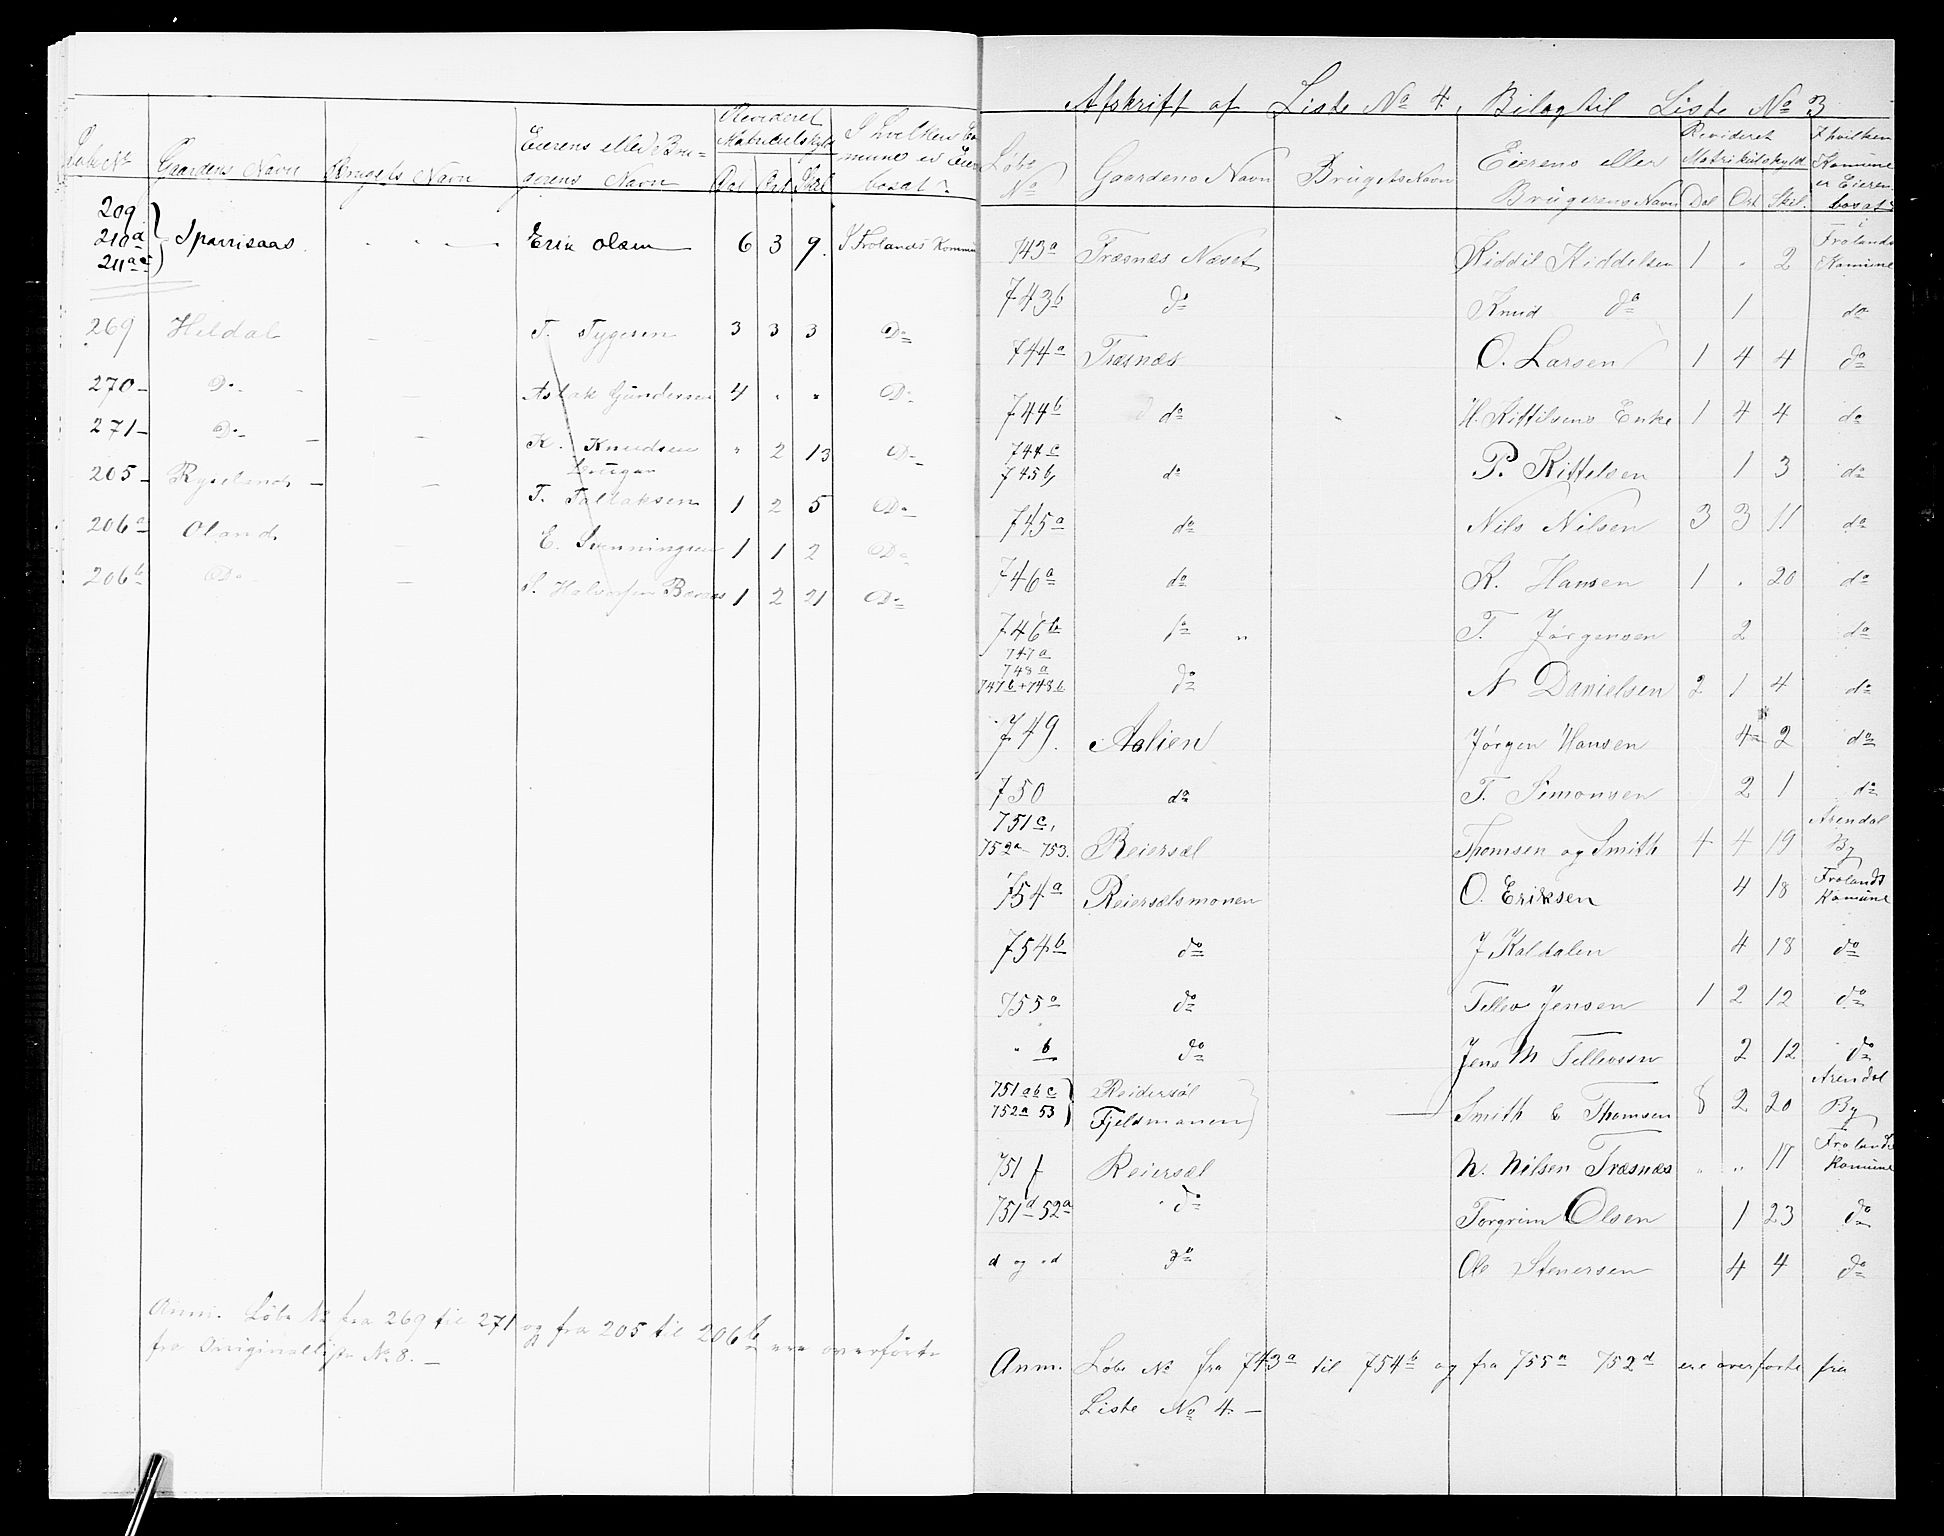 Løbe No | Gaardens Navn | Brugets Navn | Eierens eller Brugerens Navn | Revideret Matrikulskyld Dal Ort Skil | I hvilken Komune er Eieren bosat?
209
210a } Sparrisaas - - - Erik Olsen 6 3 9. I Frolands Kommune
211a
269 Heldal - T. Tygesen 3 3 3 Do
270 - Do - - Aslak Gundersen 4 " " Do
271 - Do - - K. Knudsen " 2 13 Do
205 - Ryseland - - T. Tallaksen 1 2 5 Do
206a Oland - E. Svenningsen 1 1 2 Do
206b Do - S. Halvorsen 1 2 21 Do
Anm. Løbe No fra 269 til 271 og fra 205 til 206b ere overførte
fra Originalliste No 8. -
Afskrift af Liste No 4, Bilag til Liste No 3
Løbe No | Gaardens Navn | Brugets Navn | Eierens eller Brugerens Navn | Revideret Matrikulskyld Dal Ort Skil. | I hvilken Komune er Eieren bosat?
743a Træsnæs Næset Kiddil Kiddelsen 1 . 2 i Frolands Komune
743b do Knud do 1 do
744a Træsnæs O. Larsen 1 4 4 do
744b do H. Kittilsens Enke 1 4 4 do
744c
745b, do P. Kittelsen 1 3 do
745a do Nils Nilsen 3 3 11 do
746a do K. Hansen 1 . 20 do
746b do " T. Jørgensen 2 do
747a
748a
747b+748b do N Danielsen 2 1 4 do
749. Aalien Jørgen Hansen 4 2 do
750 do T. Simonsen 2 1 do
751c,
752a 753. Reiersæl Thomsen og Smith 4 4 19 Arendal By
754a Reiersælsmonen O. Eriksen 4 18 Frolands Komune
754b do J Kaldalen 4 18 do
755a do Tellev Jensen 1 2 12 do
" b do Jens M Tellevsen 2 12 do
751abc } Reidersøl
752a 53 } Fjeldmonen } Smith & Thomsen 8 2 20 Arendal By
751f Reiersæl N. Nilsen Træsnæs " " 11 Frolands Komune
751d 52a " do Torgrim Olsen 1 23 do
d og d do Ole Stenersen 4 4 do
Anm. Løbe No fra 743a til 754b og fra 755a 752d ere overførte fra
Liste No 4. -